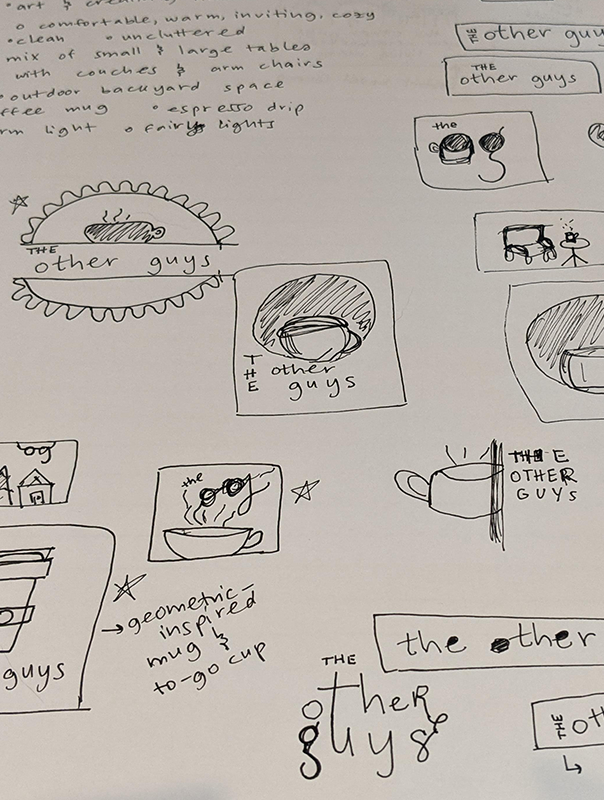 •art &
o comfortable, warm, inviting, cozy
•clean o uncluttered
mix of small & large tables
with couches & arm chairs
•outdoor backyard space
ffee mug • espresso drip
rm light o fairly lights
THE other guy
THE
other guys
the
og
THE
other guys
THE other
guys
og
the
og
THE
OTHER
GUYS
guys
→ geometric-
inspired
mug &
to-go cup
the other
THE
other
guys
THE oth